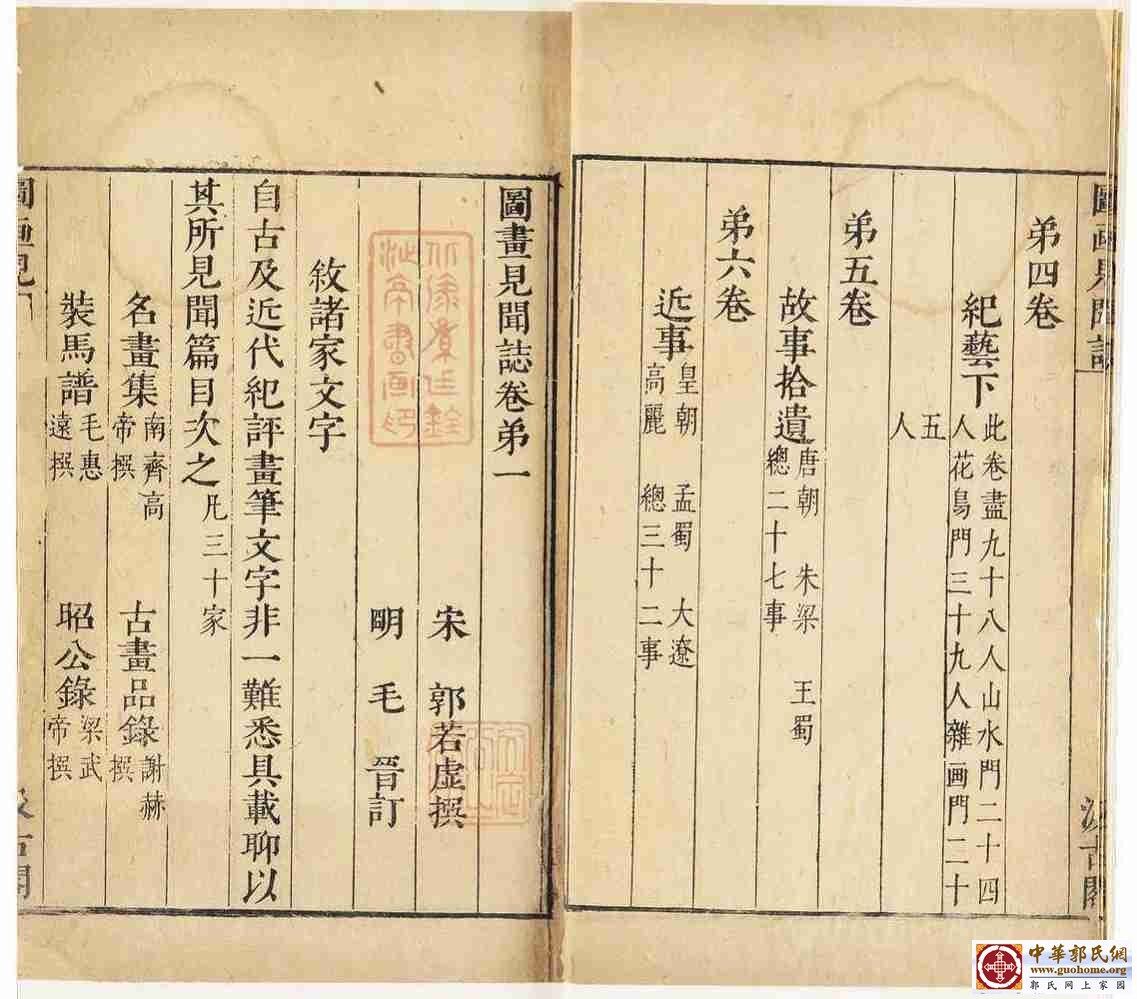 圖画見聞誌
汲古閣
弟四卷
紀藝下
此卷盡九十八人山水門二十四
人花鳥門三十九人雜画門二十
五
人
弟五卷
故事拾遺
唐朝　朱梁　王蜀
總二十七事
弟六卷
近事
皇朝　孟蜀　大遼
高麗　總三十二事
圖畫見聞誌卷弟一
宋　郭若虛撰
明　毛　晉訂
敘諸家文字
自古及近代紀評畫筆文字非一難悉具載聊以
其所見聞篇目次之凡三十家
名畫集南齊高帝撰　古畫品錄謝赫撰
裝馬譜毛惠遠撰　昭公錄梁武帝撰
圖畫見
汲古閣
中華郭氏網
www.guohome.org
郭氏网上家园